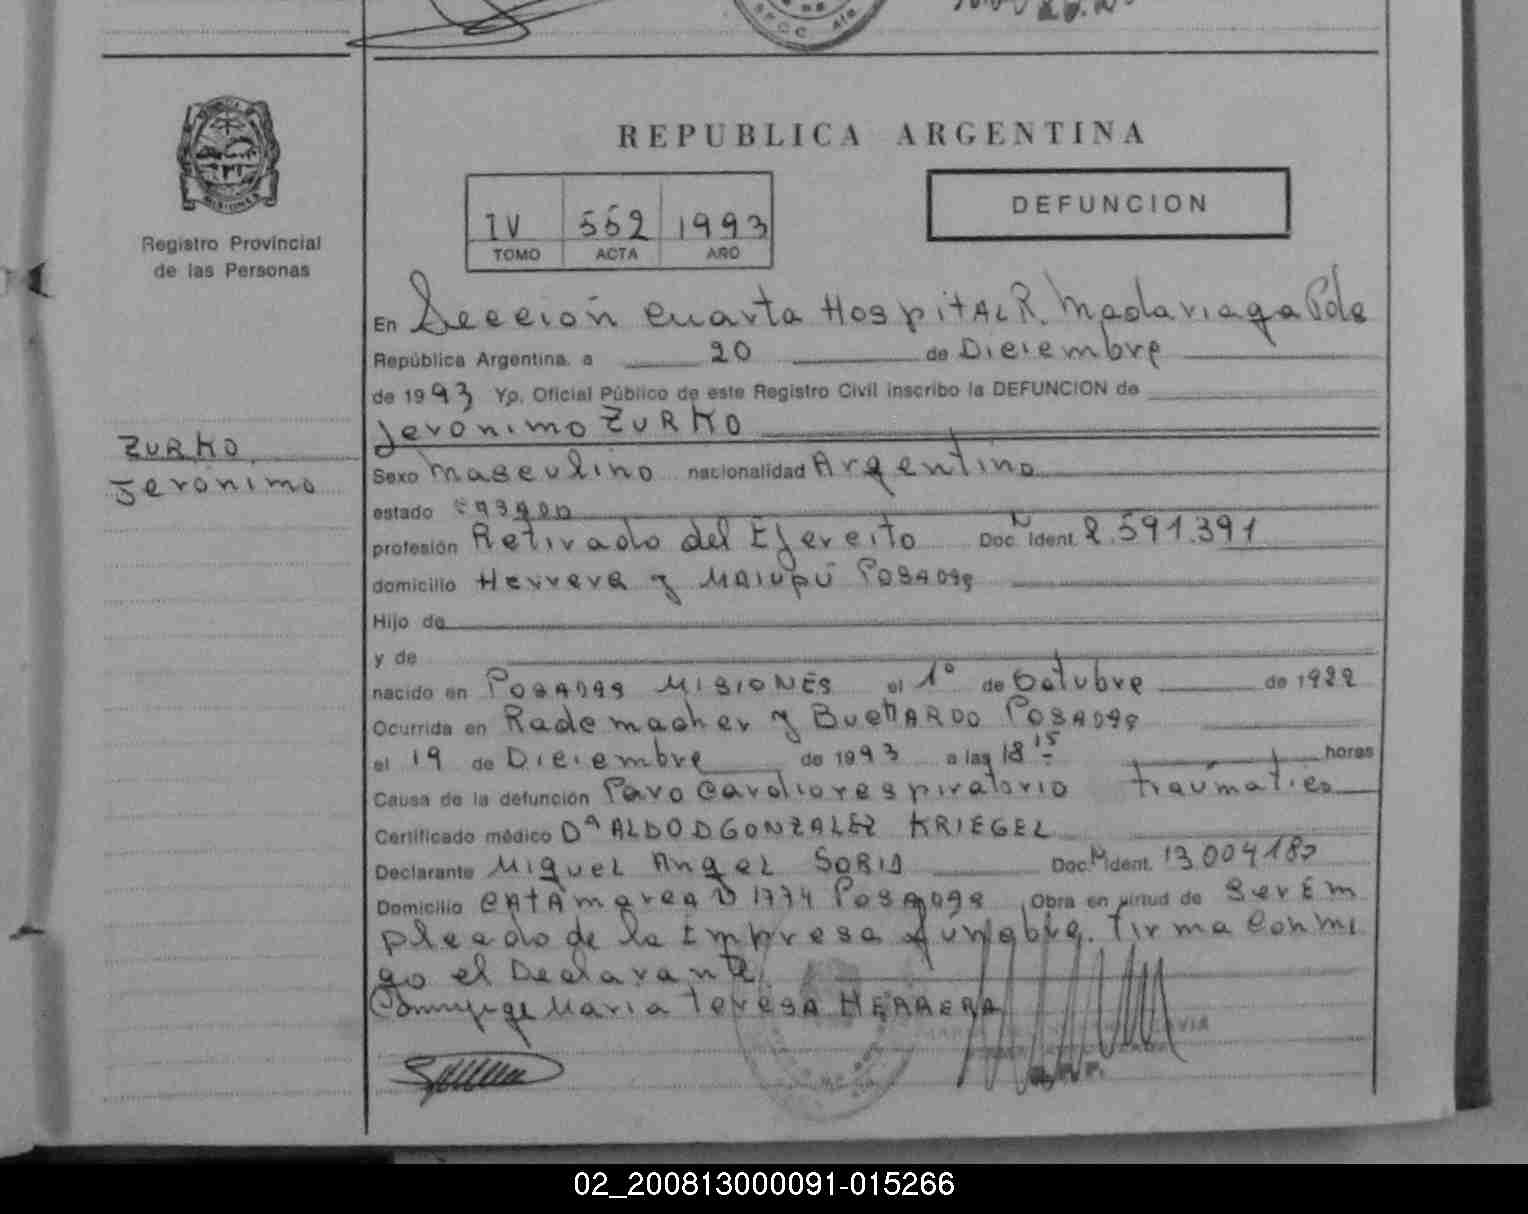 REPUBLICA ARGENTINA
IV 552 1993
TOMO ACTA AÑO
DEFUNCION
Registro Provincial
de las Personas
ZURKO
Jeronimo
En Sección Cuarta Hospital R. Madariaga Pdas
República Argentina. a 20 de Diciembre
de 1993 Yo. Oficial Público de este Registro Civil inscribo la DEFUNCION de
Jeronimo ZURKO
Sexo Masculino nacionalidad Argentino
estado casado
profesión Retirado del Ejercito Doc. N Ident. 2.591.391
domicilio Herrera y Maipú Posadas
Hijo de
y de
nacido en Posadas Misiones el 1º de Octubre de 1922
Ocurrida en Rademacher y Posadas
el 19 de Diciembre de 1993 a las 18 15 horas
Causa de la defunción Paro Cardiorespiratorio traumatico
Certificado médico Dº ALDO D GONZALEZ KRIEGEL
Declarante Miguel Angel Doc. N Ident. 13.004.187
Domicilio Catamarca Nº 1774 Posadas Obra en virtud de Ser Em
pleado de la Empresa funebre. Firma Conmi
go el Declarante
Connyuge Maria Teresa HERRERA
02_200813000091-015266